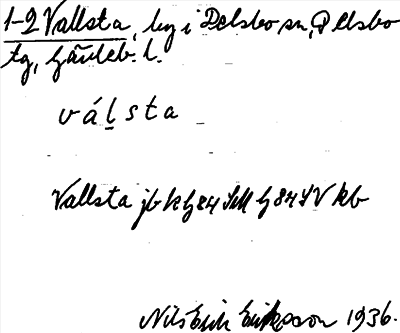 1-2 Vallsta, by i Delsbo sn, Delsbo
tg, Gävleb. l.
vál̠sta
Vallsta jb k
Nils Erik Eriksson 1936.